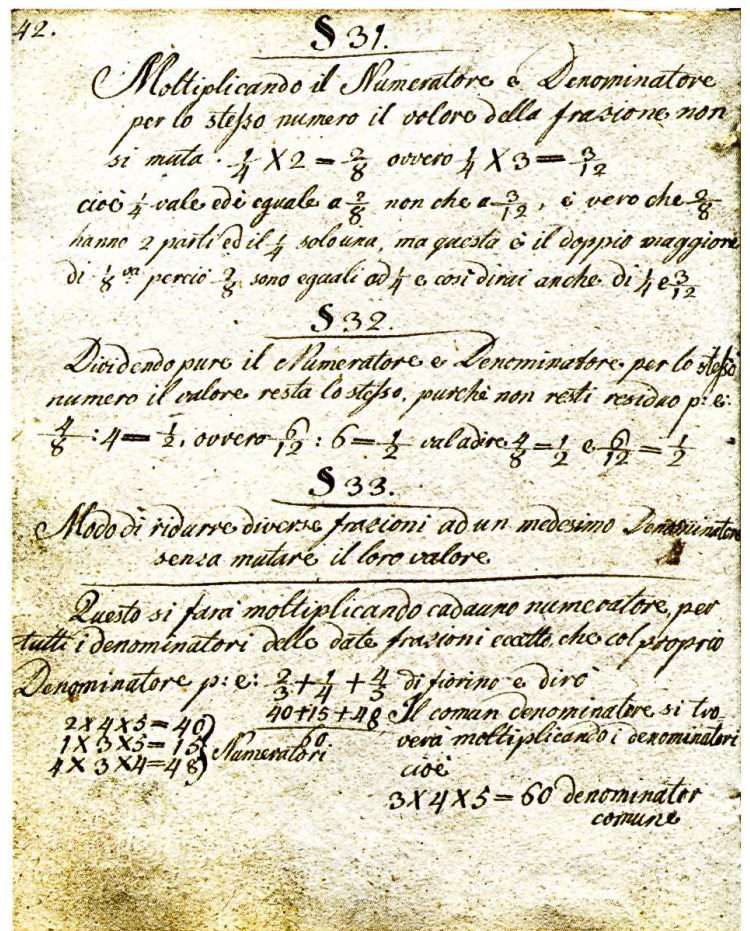 42.
§ 31.
Moltiplicando il Numeratore e Denominatore
per lo stesso numero il valore della frazione non
si muta. 1/4 X 2 = 2/8 ovvero 1/4 X 3 = 3/12
cioè 1/4 vale ed è eguale a 2/8 non che a 3/12, è vero che 2/8
hanno 2 parti ed il 1/4 solo una, ma questa è il doppio maggiore
di 1/8 va perciò 2/8 sono eguali ad 1/4 e così dirai anche di 1/4 e 3/12
§ 32.
Dividendo pure il Numeratore e Denominatore per lo stesso
numero il valore resta lo stesso, purché non resti residuo p: e:
4/8 : 4 = 1/2, ovvero 6/12 : 6 = 1/2 val a dire 4/8 = 1/2 e 6/12 = 1/2
§ 33.
Modo di ridurre diverse frazioni ad un medesimo Denominatore
senza mutare il loro valore
Questo si farà moltiplicando cadauno numeratore, per
tutti i denominatori delle date frazioni eccetto che col proprio
Denominatore p: e: 2/3 + 1/4 + 4/5 di fiorino e dirò
40+15+48
60
2X4X5=40
1X3X5=15
4X3X4=48
Numeratori
Il comun denominatore si tro-
verà moltiplicando i denominatori
cioè
3X4X5=60 denominator
comune